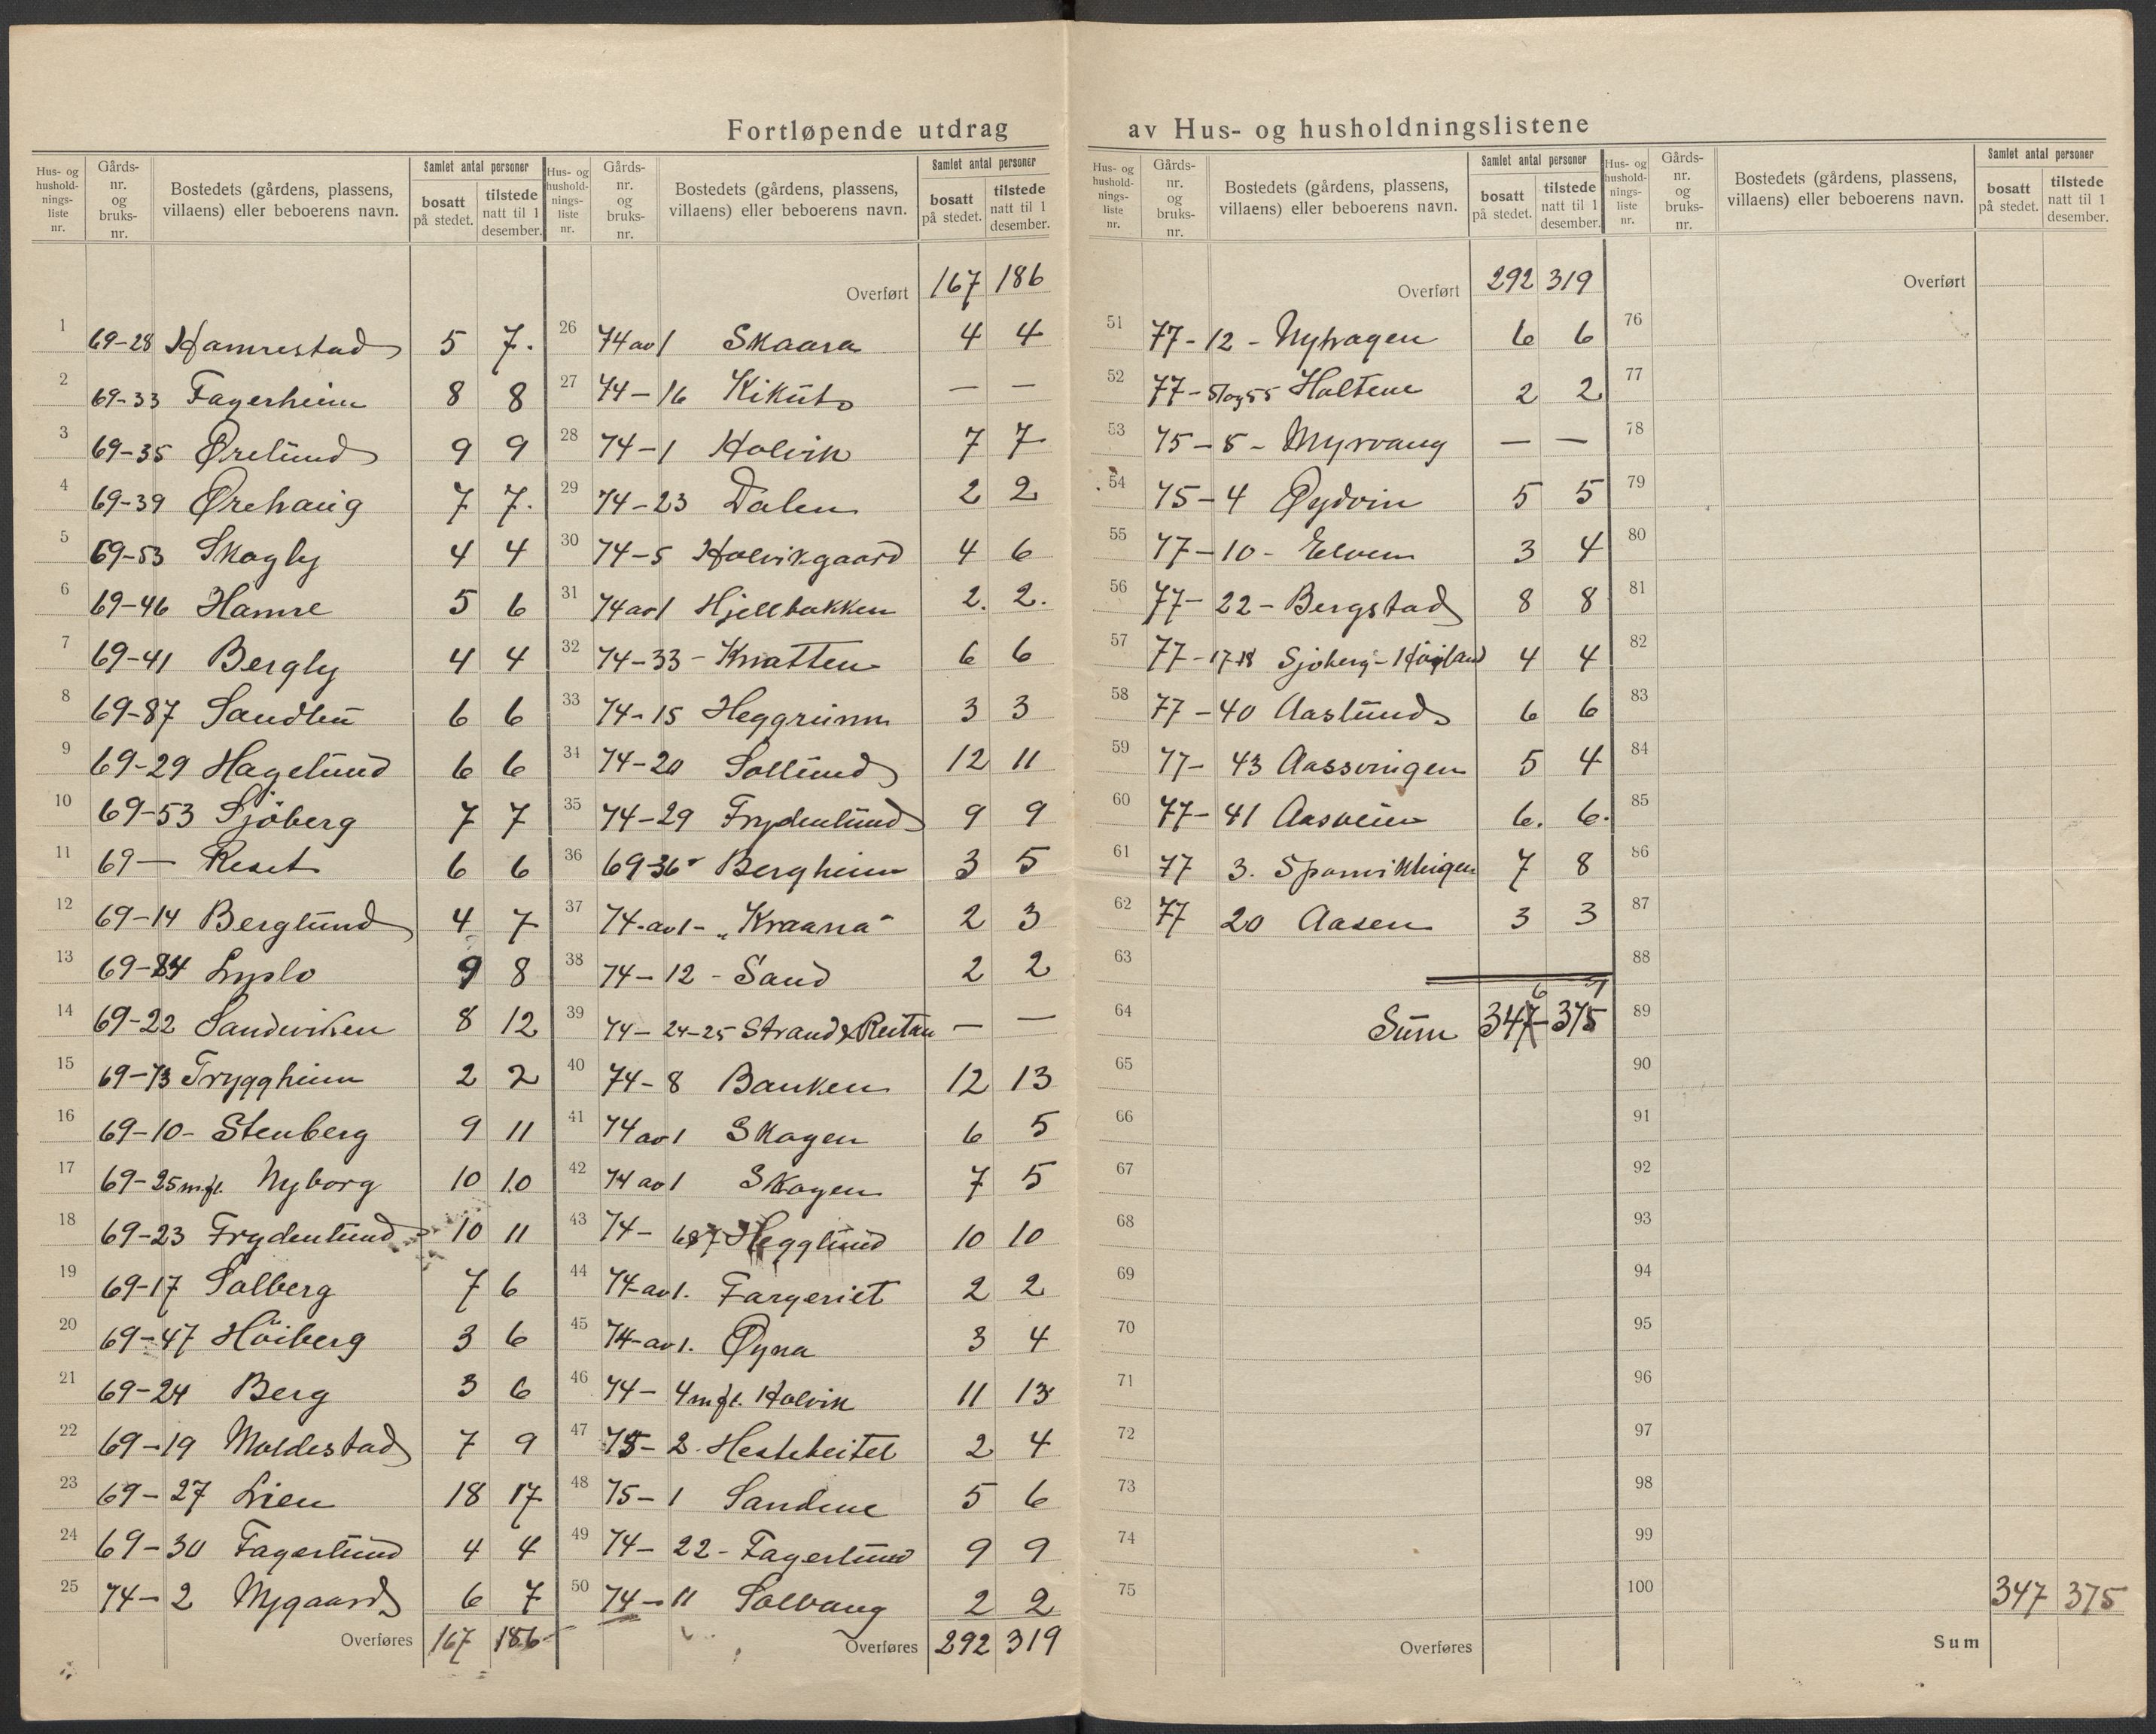 Fortløpende utdrag av Hus- og husholdningslistene
Hus- og hushold-nings-liste nr. Gårds-nr. og bruks-nr. Bostedets (gårdens, plassens, villaens) eller beboerens navn. Samlet antal personer bosatt på stedet. tilstede natt til 1 desember.
1 69-28 Hamrestad 5 7.
2 69-33 Fagerheim 8 8
3 69-35 Ørelund 9 9
4 69-39 Ørehaug 7 7.
5 69-53 Skogly 4 4
6 69-46 Hamre 5 6
7 69-41 Bergly 4 4
8 69-87 Sandbu 6 6
9 69-29 Hagelund 6 6
10 69-53 Sjöberg 7 7
11 69— Reset 6 6
12 69-14 Berglund 4 7
13 69-84 Luplo 9 8
14 69-22 Sandviken 8 12
15 69-73 Tryggheim 2 2
16 69-10- Stenberg 9 11
17 69-25 m.fl. Nyborg 10 10
18 69-23 Frydenlund 10 11
19 69-17 Solberg 7 6
20 69-47 Höiberg 3 6
21 69-24 Berg 3 6
22 69-19 Moldestad 7 9
23 69-27 Lien 18 17
24 69-30 Fagerlund 4 4
25 74-2 Nygaard 6 7
Overføres 167 186
Hus- og hushold-nings-liste nr. Gårds-nr. og bruks-nr. Bostedets (gårdens, plassens, villaens) eller beboerens navn. Samlet antal personer bosatt på stedet. tilstede natt til 1 desember.
Overført 167 186
26 74 av 1 Skaara 4 4
27 74-16 Kikut — —
28 74-1 Holvik 7 7
29 74-23 Dalen 2 2
30 74-5 Holvikgaard 4 6
31 74 av 1 Hjellbakken 2. 2.
32 74-33- Knatten 6 6
33 74-15 Heggrunn 3 3
34 74-20 Sollund 12 11
35 74-29 Frydenlund 9 9
36 69-36 Bergheim 3 5
37 74-av 1- „Kraana" 2 3
38 74-12- Sand 2 2
39 74-24-25 Strand & — —
40 74-8 Banken 12 13
41 74 av 1 Skogen 6 5
42 74 av 1 Skogen 7 5
43 74- Hegglund 10 10
44 74-av 1. Fargeriet 2 2
45 74-av 1. Øyra 3 4
46 74-4 m.fl. Holvik 11 13
47 75-2. Hestebeitet 2 4
48 75-1 Sandene 5 6
49 74-22- Fagerlund 9 9
50 74-11 Solvang 2 2
Overføres 292 319
Hus- og hushold-nings-liste nr. Gårds-nr. og bruks-nr. Bostedets (gårdens, plassens, villaens) eller beboerens navn. Samlet antal personer bosatt på stedet. tilstede natt til 1 desember.
Overført 292 319
51 77-12- Nyhagen 6 6
52 77-51 og 55 Holtene 2 2
53 75-5- Myrvang — —
54 75-4 Øydvin 5 5
55 77-10- Elven 3 4
56 77-22- Bergstad 8 8
57 77-17-18 Sjøberg- 4 4
58 77-40 Aaslund 6 6
59 77-43 Aassvingen 5 4
60 77-41 Aasveien 6. 6.
61 77 3. 7 8
62 77 20 Aasen 3 3
63
64 Sum 347 375
65
66
67
68
69
70
71
72
73
74
75
Overføres
Hus- og hushold-nings-liste nr. Gårds-nr. og bruks-nr. Bostedets (gårdens, plassens, villaens) eller beboerens navn. Samlet antal personer bosatt på stedet. tilstede natt til 1 desember.
Overført
76
77
78
79
80
81
82
83
84
85
86
87
88
89
90
91
92
93
94
95
96
97
98
99
100
Sum 347 375